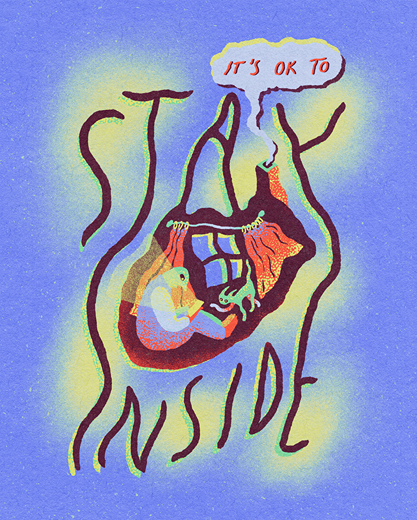 IT'S OK TO
STAY
INSIDE